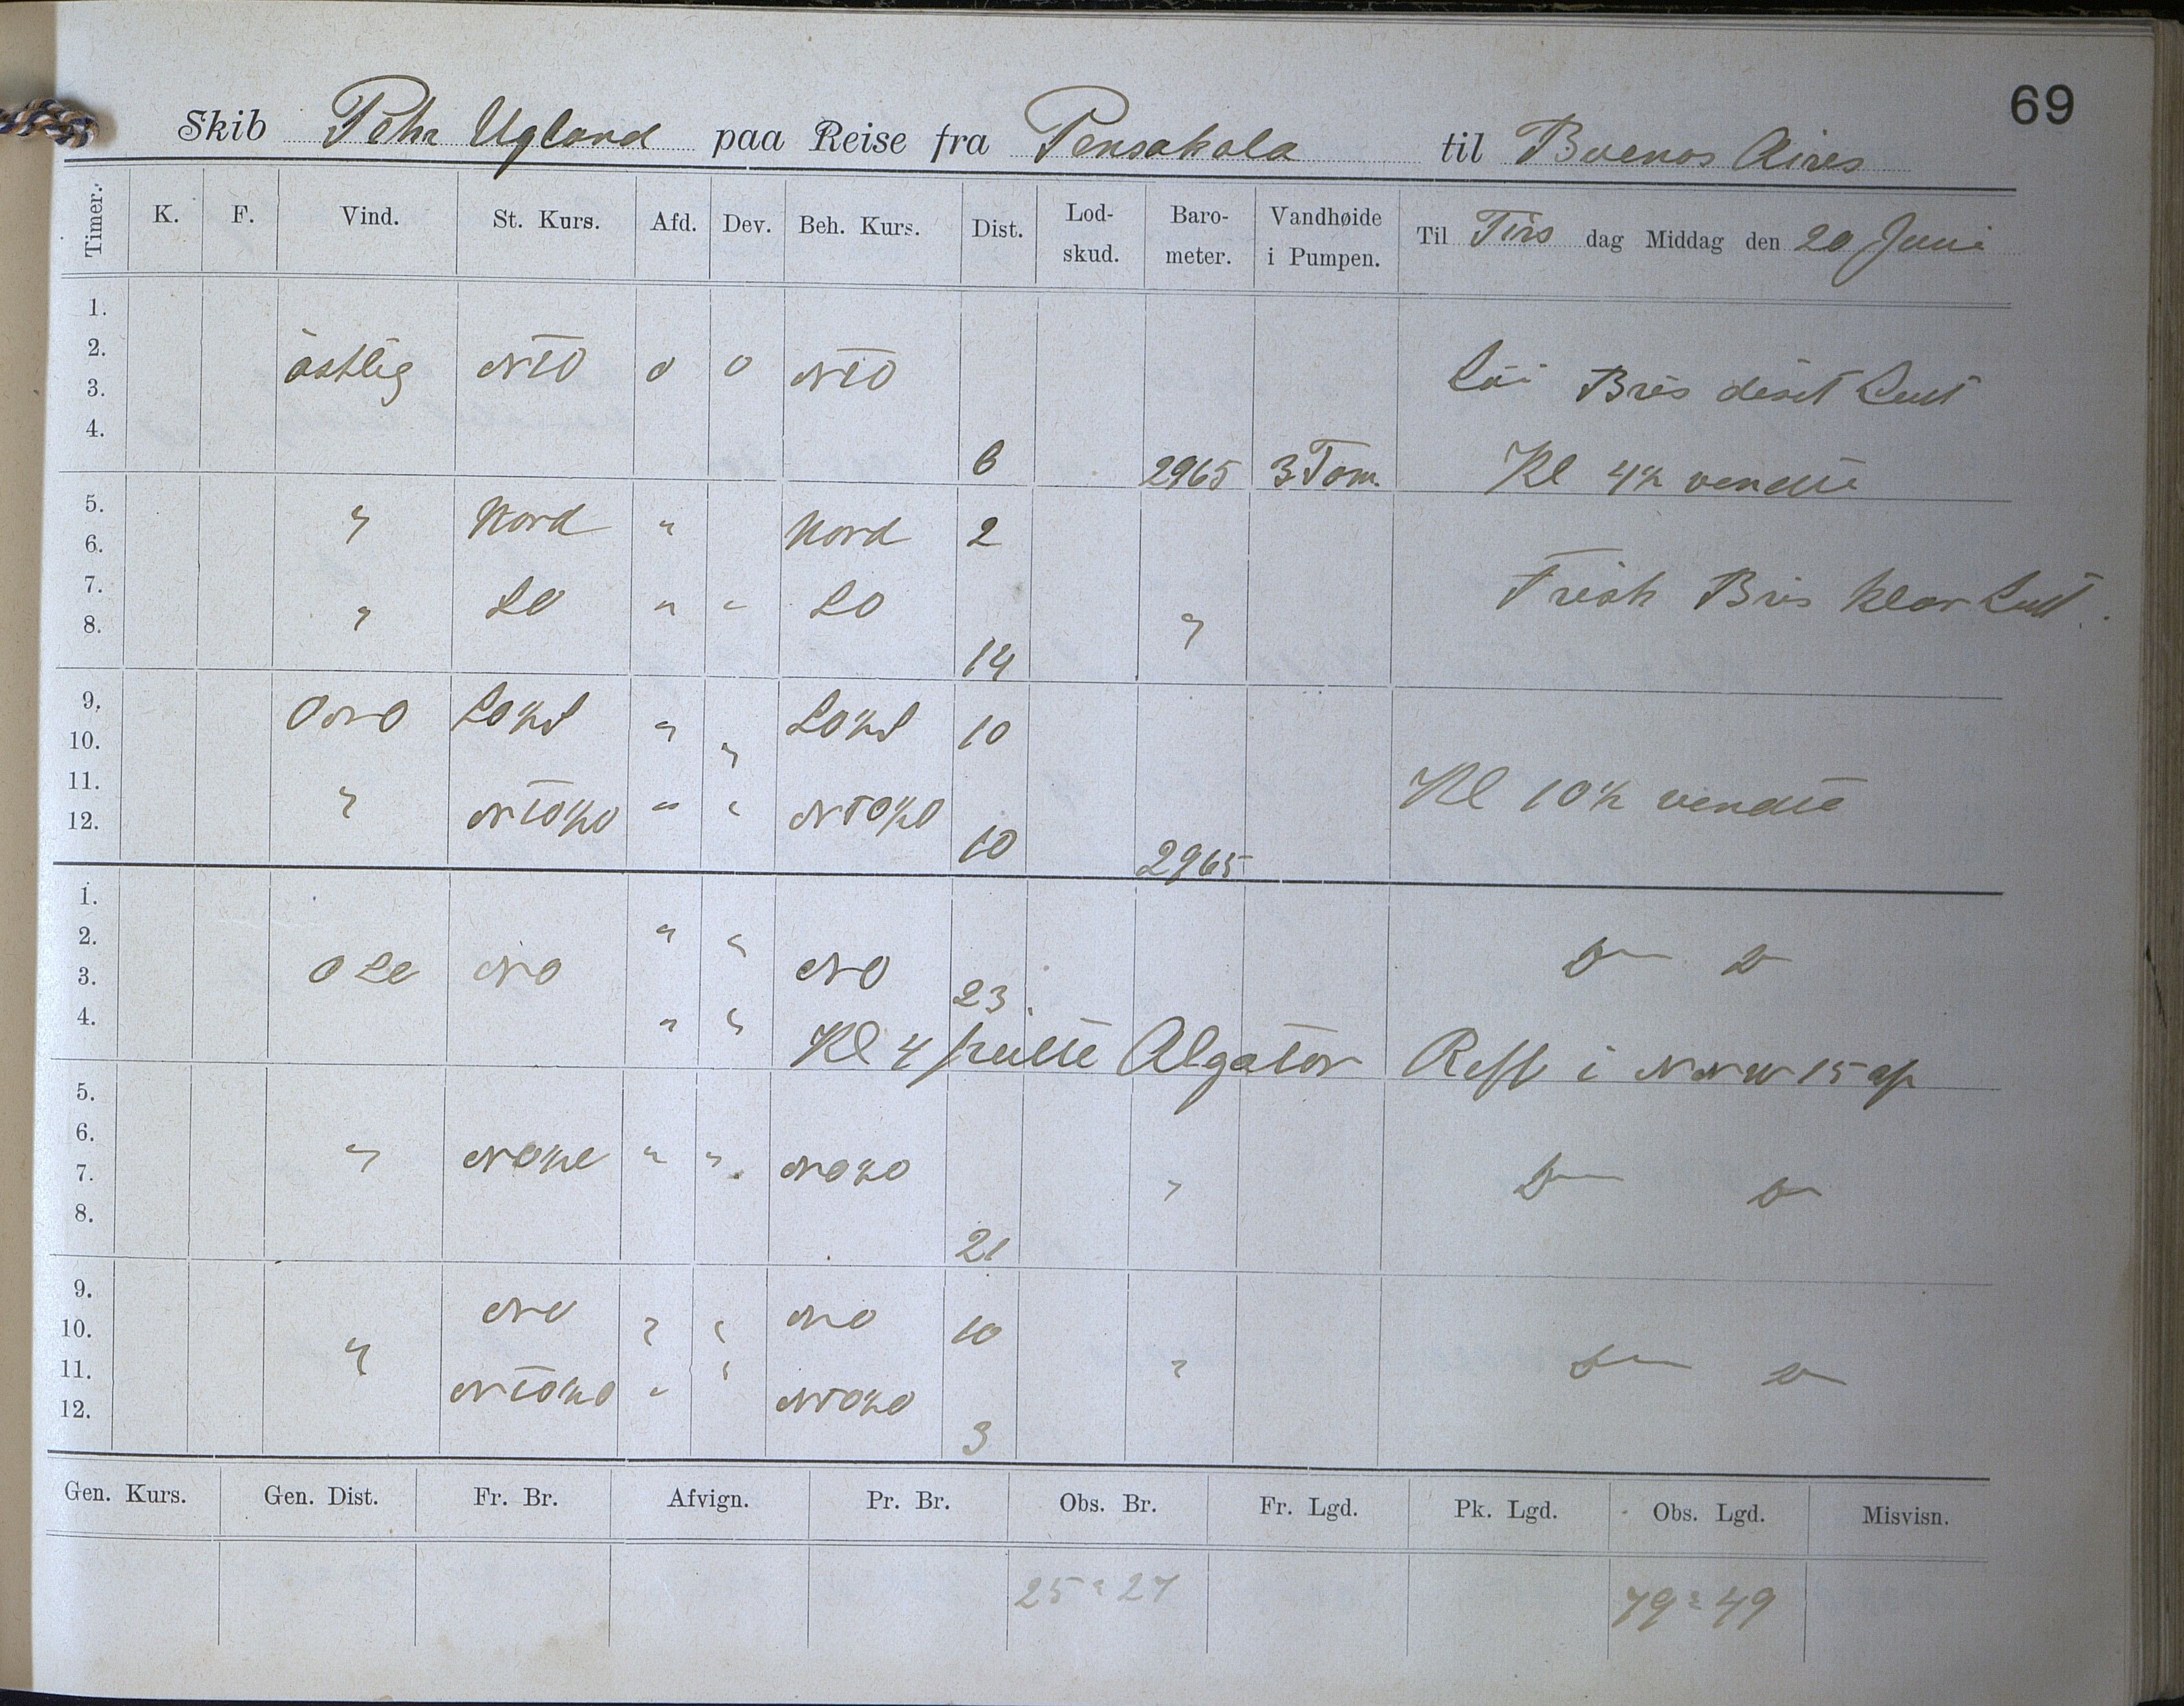 69
Skib Pehr Ugland paa Reise fra Pensakola til Buenos Aires
Timer. K. F. Vind. St. Kurs. Afd. Dev. Beh. Kurs. Dist. Lod-skud. Baro-meter. Vandhøide i Pumpen. Til Tirs dag Middag den 20 Juni
1.
2. östlig NTO 0 0 NTO Löi Bris diset Luft
3.
4. 6 2965 3 Tom. Kl 4½ vendte
5. " Nord " Nord 2
6.
7. " SO " " SO Frisk Bris klar Luft.
8. 14 "
9. ONO SO½S " " SO½S 10
10.
11. " NTO½O " " NTO½O Kl 10½ vendte
12. 10 2965
1.
2. " "
3. OSO NO NO 23 D D
4. " " Kl 4 peilte Algator Reff i NNW 15 af
5.
6. " NO½O " " NO½O
7. " D D
8. 21
9. NO NO
10. " " " 10
11. " " D D
12. NTO½O " NTO½O 3
Gen. Kurs. Gen. Dist. Fr. Br. Afvign. Pr. Br. Obs. Br. Fr. Lgd. Pk. Lgd. Obs. Lgd. Misvisn.
25 = 27 79 = 49